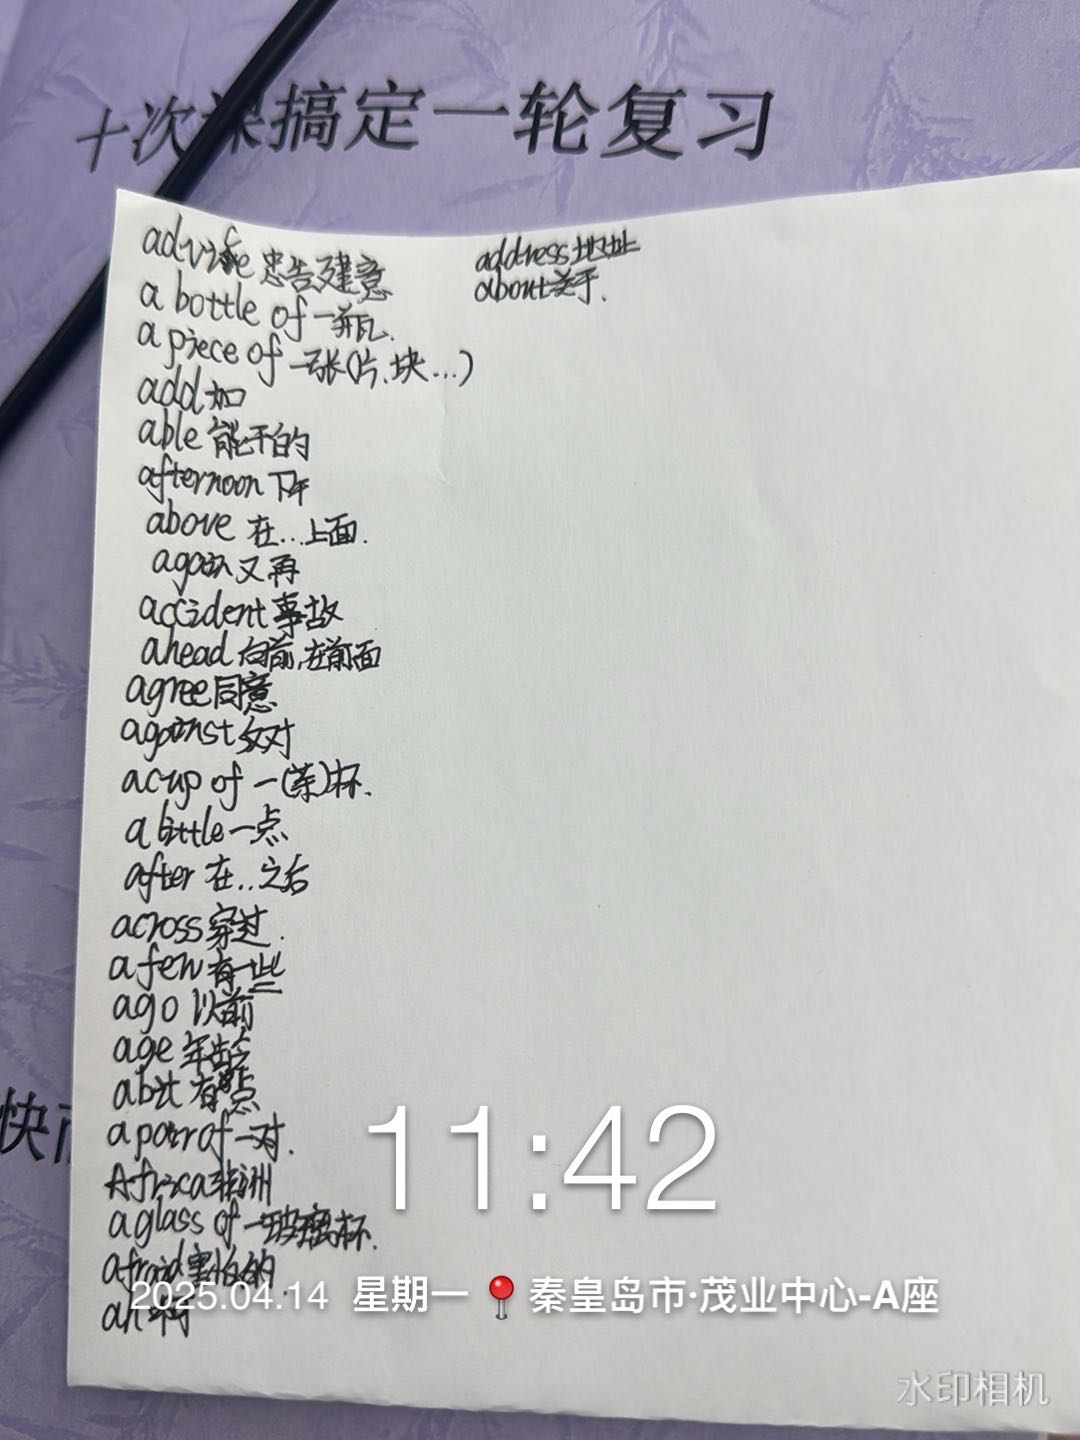 十次课搞定一轮复习
advice 忠告建议
address 地址
about 关于.
a bottle of 一瓶.
a piece of 一张(片、块...)
add 加
able 能干的
afternoon 下午
above 在...上面.
again 又再
accident 事故
ahead 向前,在前面
agree 同意
against 反对
a cup of 一(茶)杯.
a little 一点
after 在...之后
across 穿过.
a few 有一些
ago 以前
age 年龄
a bit 有点
a pair of 一对.
Africa 非洲
a glass of 一玻璃杯.
afraid 害怕的
ah 啊
快
11:42
2025.04.14 星期一 📍秦皇岛市·茂业中心-A座
水印相机